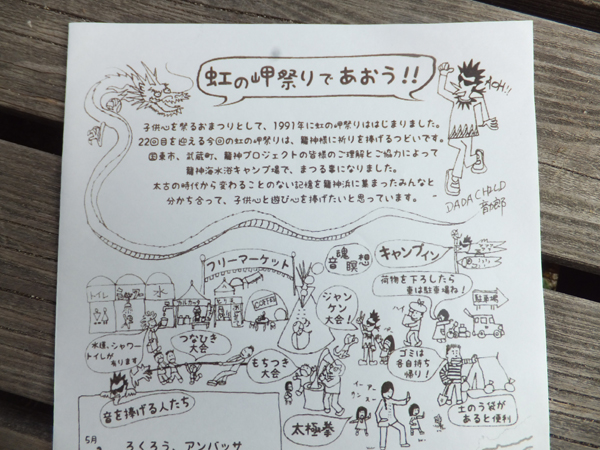 虹の岬祭りであおう!!
ACH!!
子供心を祭るおまつりとして、1991年に虹の岬祭りははじまりました。
22回目を迎える今回の虹の岬祭りは、龍神様に祈りを捧げるつどいです。
国東市、武蔵町、龍神プロジェクトの皆様のご理解とご協力によって
龍神海水浴キャンプ場で、まつる事になりました。
太古の時代から変わることのない記憶を龍神浜に集まったみんなと
分かち合って、子供心と遊び心を捧げたいと思っています。
DADA CHILD
フリーマーケット
音魂瞑想
キャンプイン
荷物を下ろしたら
車は駐車場ね!
駐車場
トイレ
水
COFFEE
ジャン
ケン
大会!
水場、シャワー
トイレが
あります
つなひき
大会
もちつき
大会
ゴミは
各自持ち
帰り!
イー アー
サン スー
太極拳
土のう袋が
あると便利
音を捧げる人たち
5月
ろくろう、アンバッサ